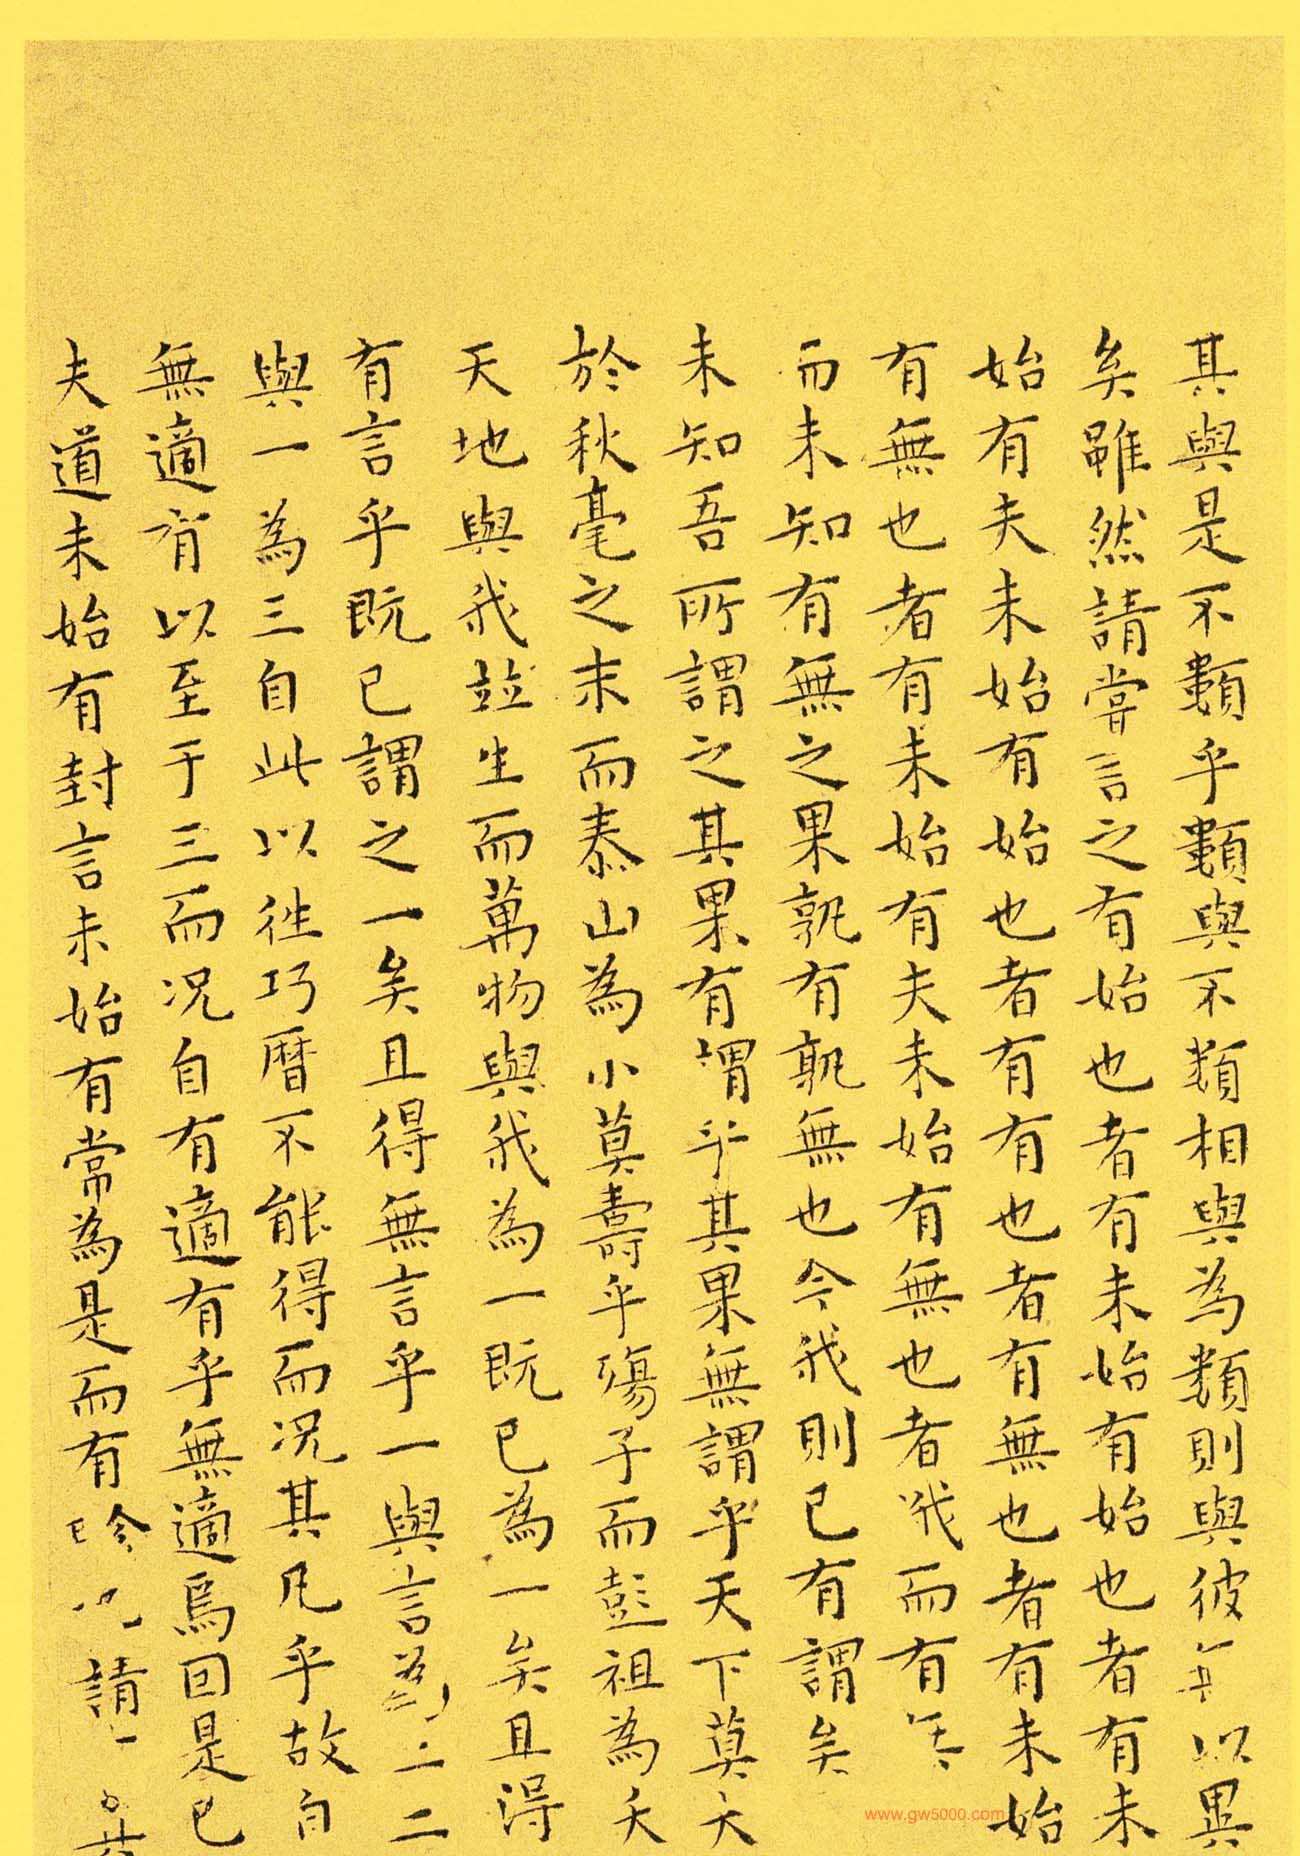 其與是不類乎類與不類相與為類則與彼無以異
矣雖然請嘗言之有始也者有未始有始也者有未
始有夫未始有始也者有有也者有無也者有未始
有無也者有未始有夫未始有無也者我而有
而未知有無之果孰有孰無也今我則已有謂矣
未知吾所謂之其果有謂乎其果無謂乎天下莫大
於秋毫之末而泰山為小莫壽乎殤子而彭祖為夭
天地與我並生而萬物與我為一既已為一矣且得
有言乎既已謂之一矣且得無言乎一與言為二二
與一為三自此以往巧曆不能得而況其凡乎故自
無適有以至于三而況自有適有乎無適焉因是已
夫道未始有封言未始有常為是而有 請
www.gw5000.com